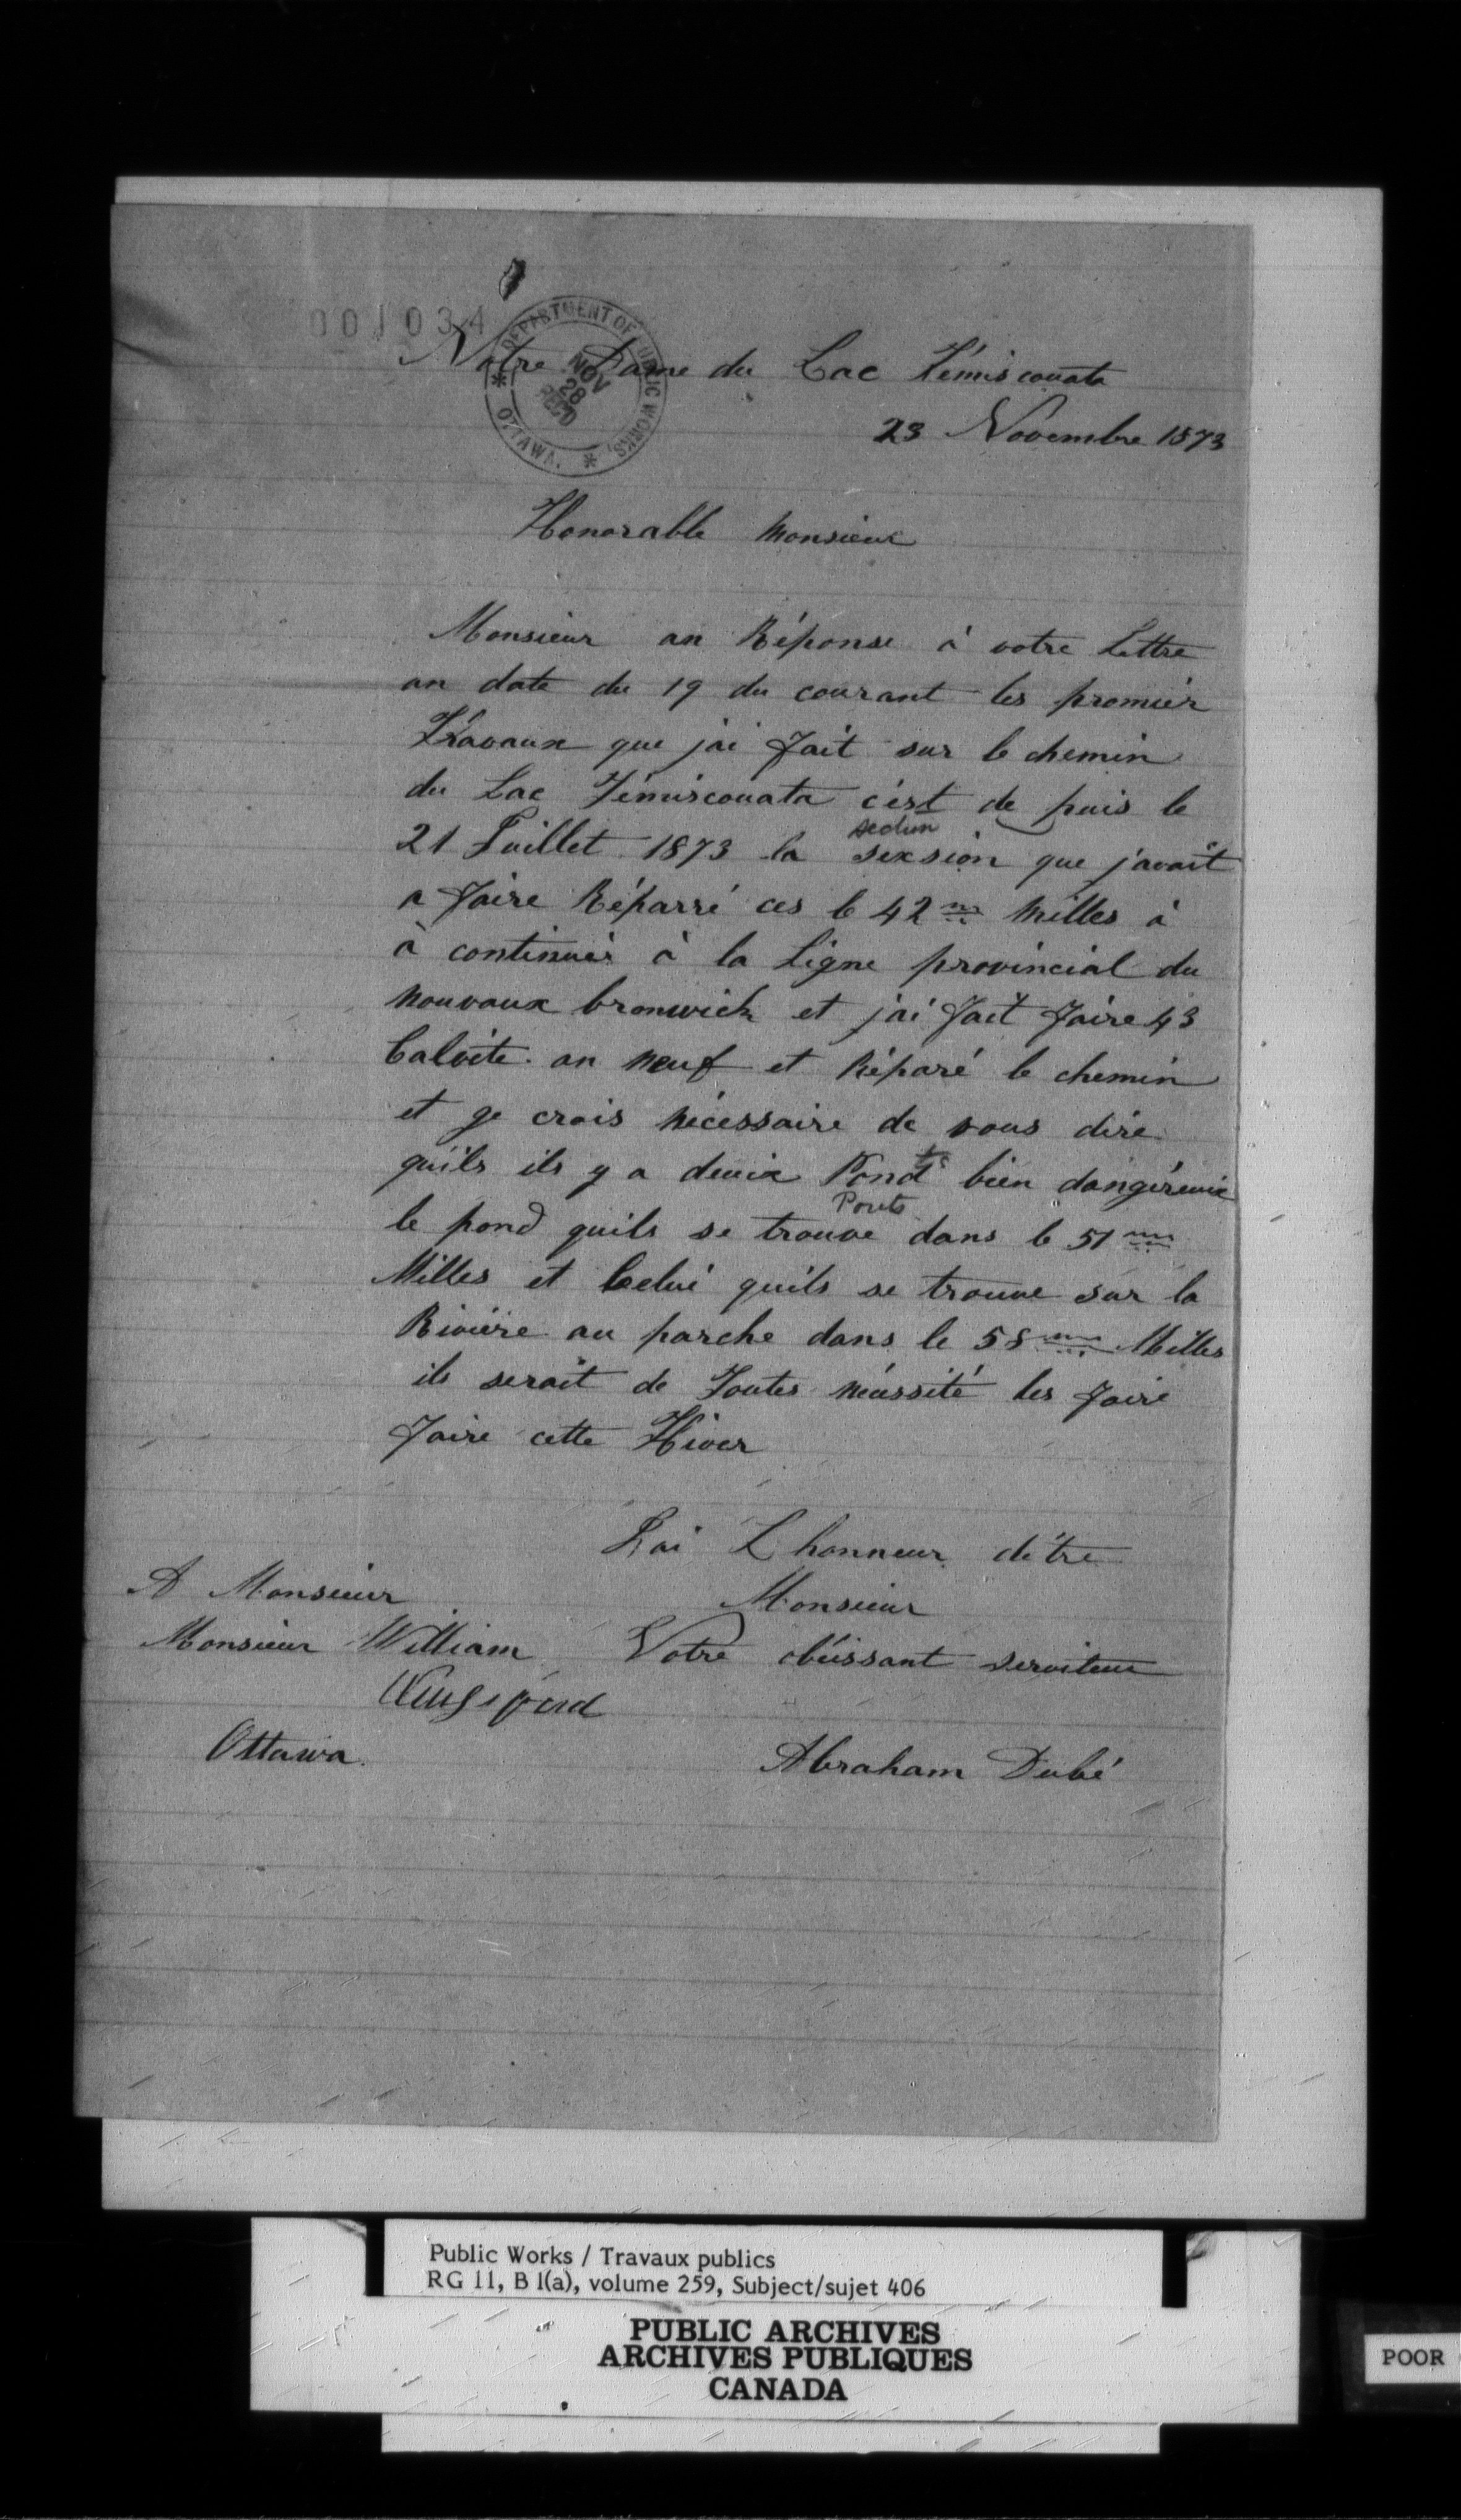 001034
DEPARTMENT OF PUBLIC WORKS,
NOV
28
REC'D
* OTTAWA. *
Nôtre Dame du Lac Témiscouata
23 Novembre 1873
Honorable Monsieur
Monsieur an Réponse à votre Lettre
an date du 19 du courant les promiér
Travaux que j'ai fait sur le chemin
du Lac Témiscouata c'est de puis le
section
21 Juillet 1873 la sexsion que j'avait
a faire Réparré ces le 42me Milles à
à continuér à la Ligne provincial du
nouvaux bronwich et j'ai fait faire 43
Calvite an neuf et Réparé le chemin
et ge crois nécessaire de vous dire
quils ils y a deuix Pond ts bien dangéreuix
Ponts
le pond quils se trouve dans le 51me
Milles et Celui quils se trouve sur la
Riviére au parche dans le 58me Milles
ils serait de Toutes néussité les faire
faire cette Hiver
J'ai L honneur d'être
A Monsieur
Monsieur
Monsieur William
Votre obéissant serviteur
Kingsford
Ottawa.
Abraham Dubé
Public Works / Travaux publics
RG 11, B 1(a), volume 259, Subject/sujet 406
PUBLIC ARCHIVES
ARCHIVES PUBLIQUES
CANADA
POOR